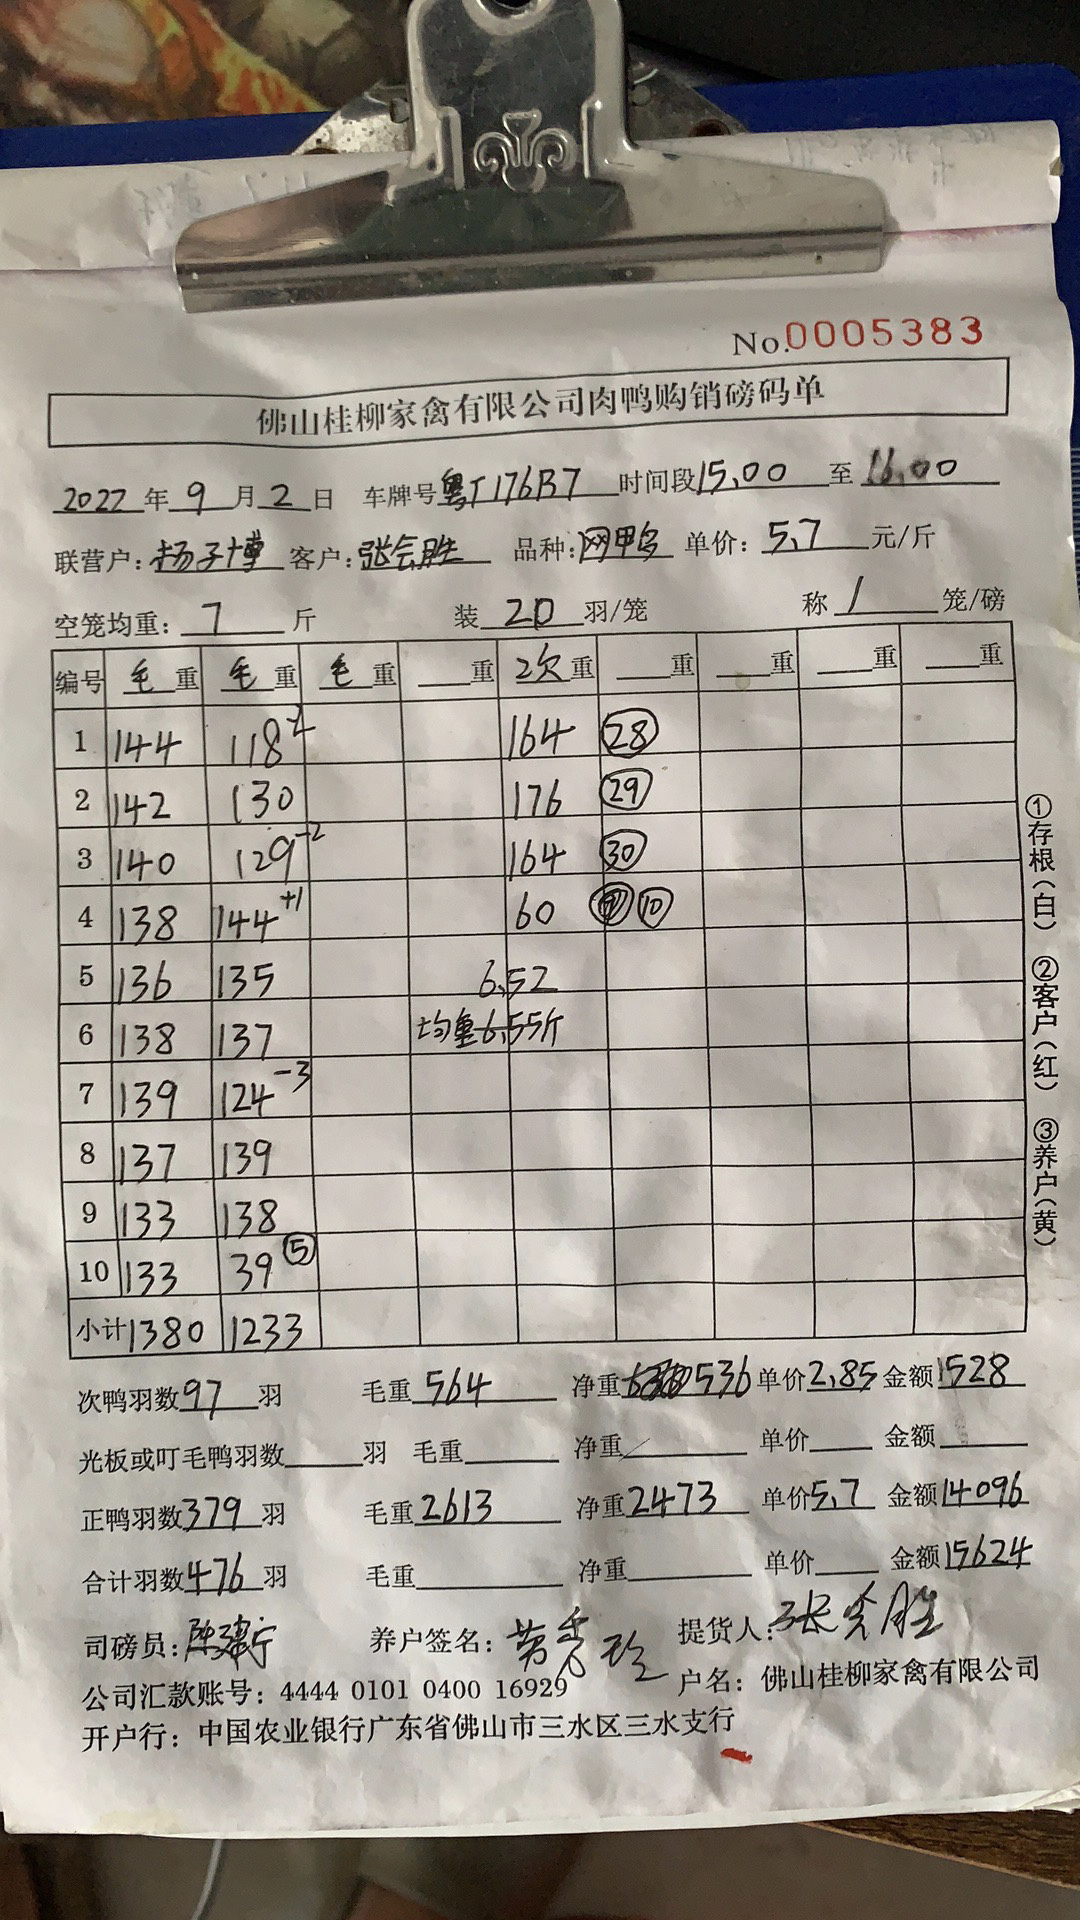 No.0005383
佛山桂柳家禽有限公司肉鸭购销磅码单
2022年9月2日 车牌号粤J176B7 时间段15,00至16,00
联营户:杨子博 客户:张会胜 品种:网甲鸟 单价:5,7元/斤
空笼均重:7斤 装20羽/笼 称1笼/磅
编号 毛重 毛重 毛重 重 2次重 重 重 重 重
1 144 118-2 164 28
2 142 130 176 29
3 140 129-2 164 30
4 138 144+1 60 10
5 136 135 6,52
6 138 137 均重6,55斤
7 139 124-3
8 137 139
9 133 138
10 133 39 5
小计 1380 1233
次鸭羽数97羽 毛重564 净重536 单价2,85 金额1528
光板或叮毛鸭羽数 羽 毛重 净重 单价 金额
正鸭羽数379羽 毛重2613 净重2473 单价5,7 金额14096
合计羽数476羽 毛重 净重 单价 金额15624
司磅员:陈建宁 养户签名: 提货人:张会胜
公司汇款账号:4444 0101 0400 16929 户名:佛山桂柳家禽有限公司
开户行:中国农业银行广东省佛山市三水区三水支行
①存根(白) ②客户(红) ③养户(黄)